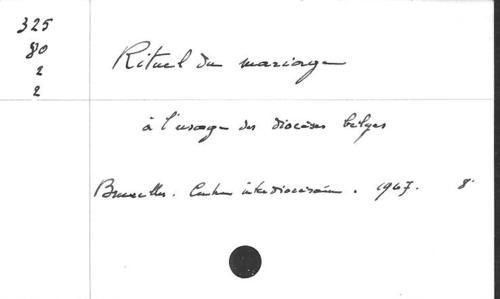 325
80
2
2
Rituel du mariage
à l'usage des diocèses belges
Bruxelles. Centre interdiocésain. 1967. 8°